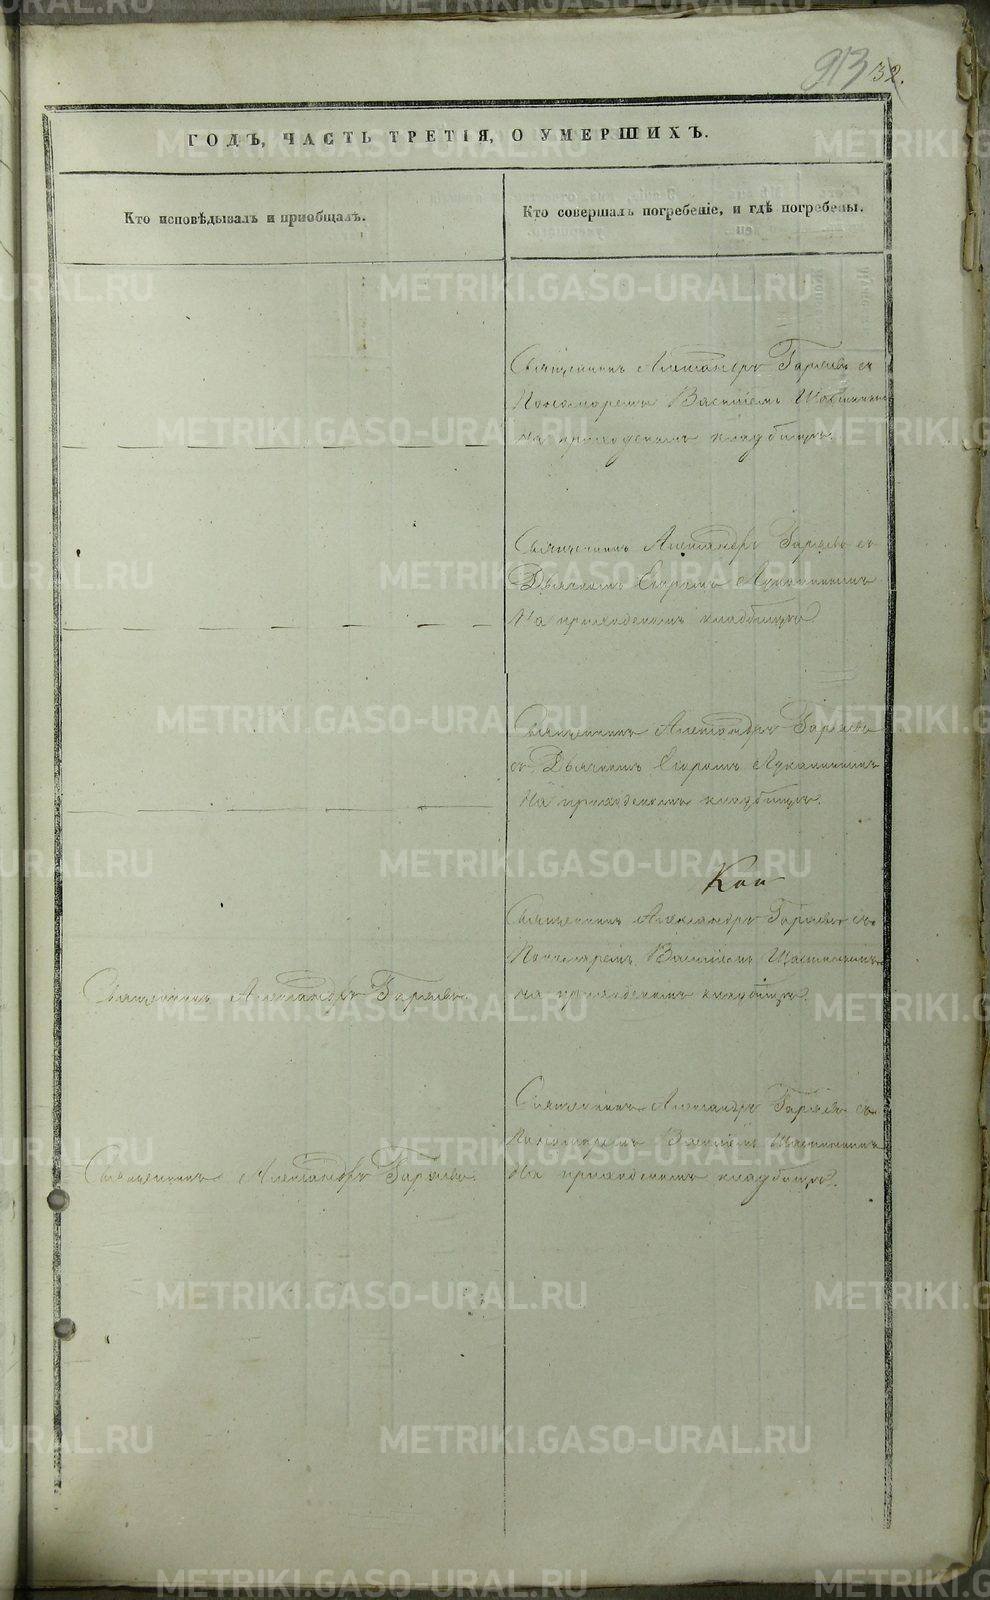 913 32.
ГОДЪ, ЧАСТЬ ТРЕТІЯ, О УМЕРШИХЪ.
Кто исповѣдывалъ и приобщалъ.
Кто совершалъ погребеніе, и гдѣ погребены.
Священникъ Александръ Гаряевъ съ
Пономаремъ Василіемъ
на приходскомъ кладбищѣ.
Священникъ Александръ Гаряевъ съ
Дьячкомъ Егоромъ Луканинымъ
На приходскомъ кладбищѣ
Священникъ Александръ Гаряевъ
съ Дьячкомъ Егоромъ Луканинымъ
На приходскомъ кладбищѣ.
Священникъ Александръ Гаряевъ съ
Пономаремъ Василіемъ
на приходскомъ кладбищѣ.
Священникъ Александръ Гаряевъ.
Священникъ Александръ Гаряевъ съ
Пономаремъ Василіемъ
На приходскомъ кладбищѣ.
Священникъ Александръ Гаряевъ.
METRIKI.GASO-URAL.RU